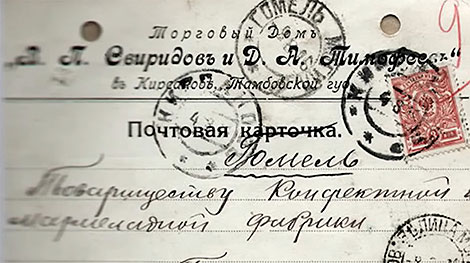 Торговый Домъ
„В. П. Свиридовъ и Д. А. Тимофеевъ“
въ Кирсановѣ, Тамбовской губ.
ГОМЕЛЬ
Почтовая карточка.
Гомель
Товариществу Конфектной и
мармеладной фабрики